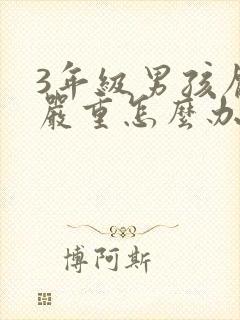 3年級男孩
嚴重怎麼办
博阿斯